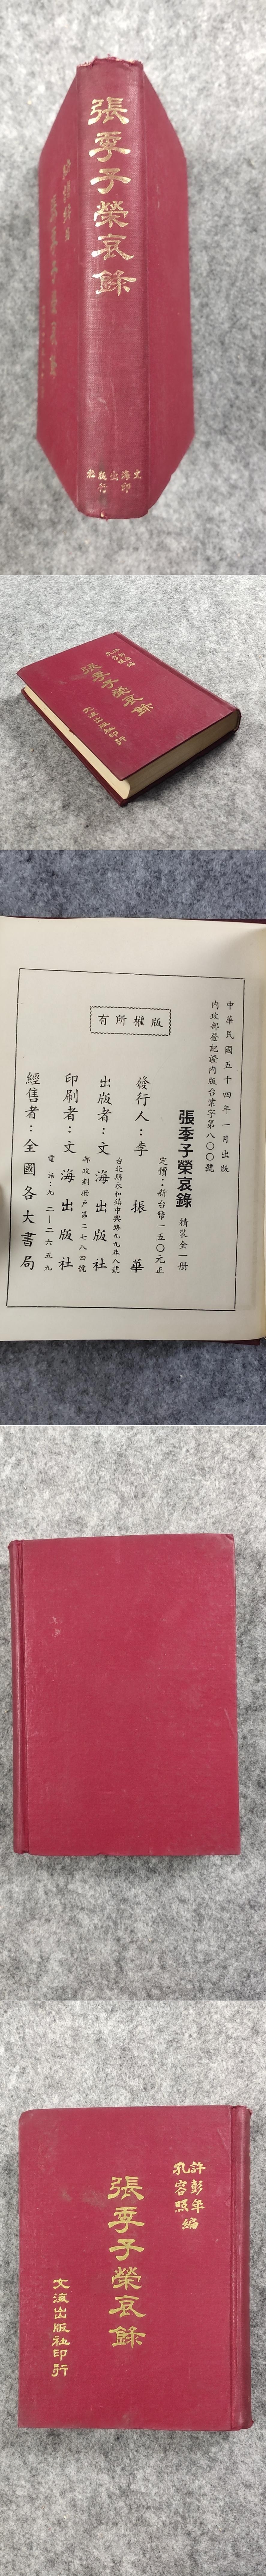 張季子榮哀錄
文海出版社
印行
張季子榮哀錄
文海出版社印行
中華民國五十四年一月出版
內政部登記證內版台業字第八〇〇號
張季子榮哀錄 精裝全一冊
定價：新台幣一五〇元正
版權所有
發行人：李振華
台北縣永和鎮中興路九九巷八號
出版者：文海出版社
郵政劃撥戶第二七八四號
印刷者：文海出版社
電話：九二一二六五九
經售者：全國各大書局
許彭年
孔容照編
張季子榮哀錄
文海出版社印行